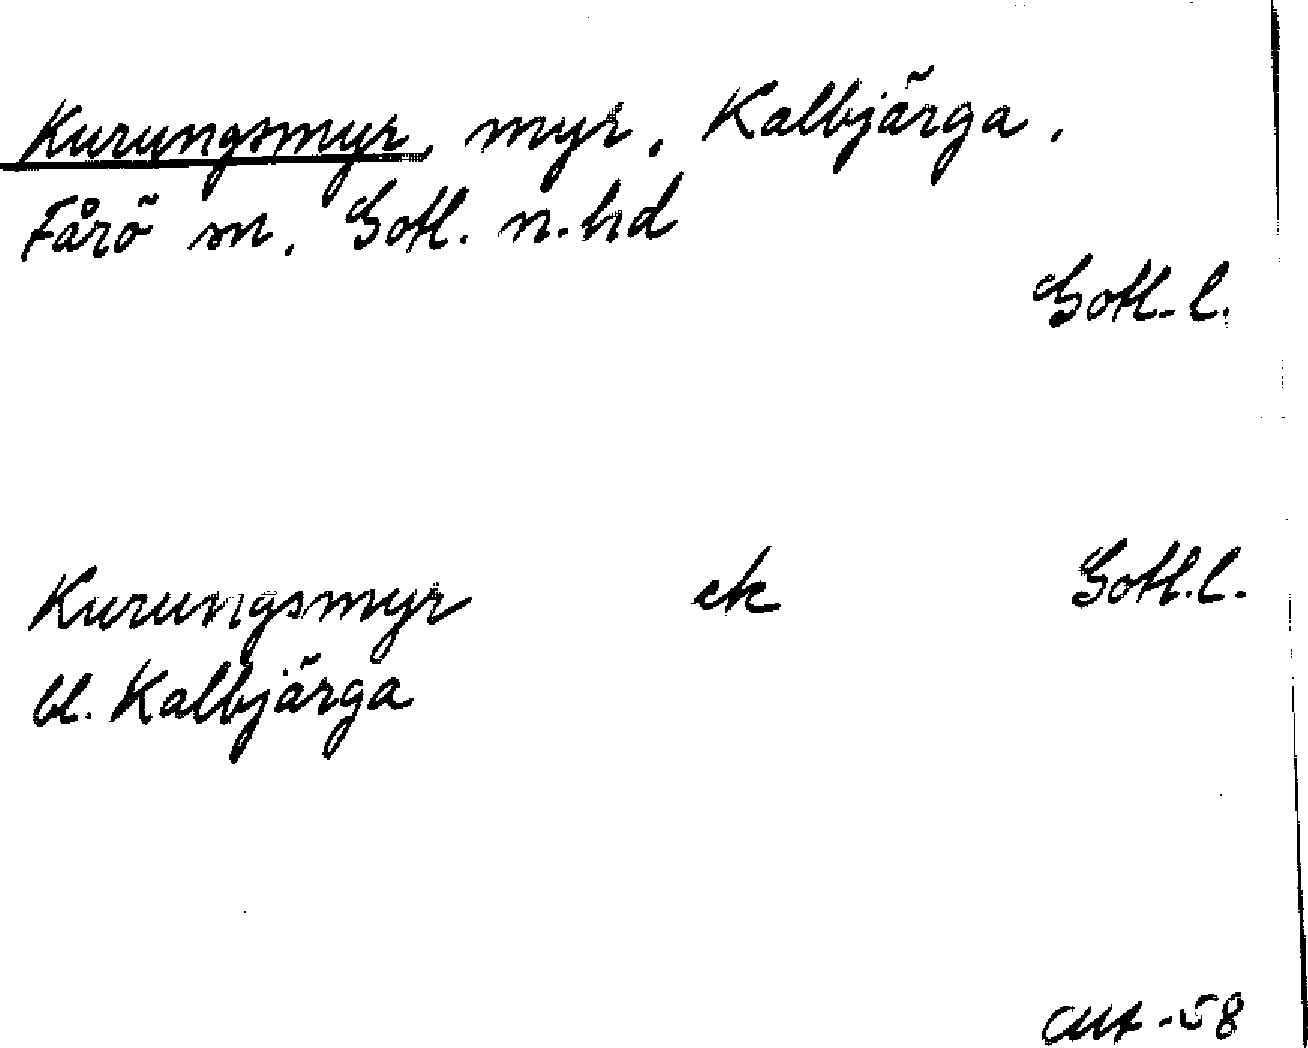 Kurungsmyr, myr, Kalbjärga,
Fårö sn, Gotl. n. hd
Gotl. l.
Kurungsmyr ek Gotl. l.
bl. Kalbjärga
-58